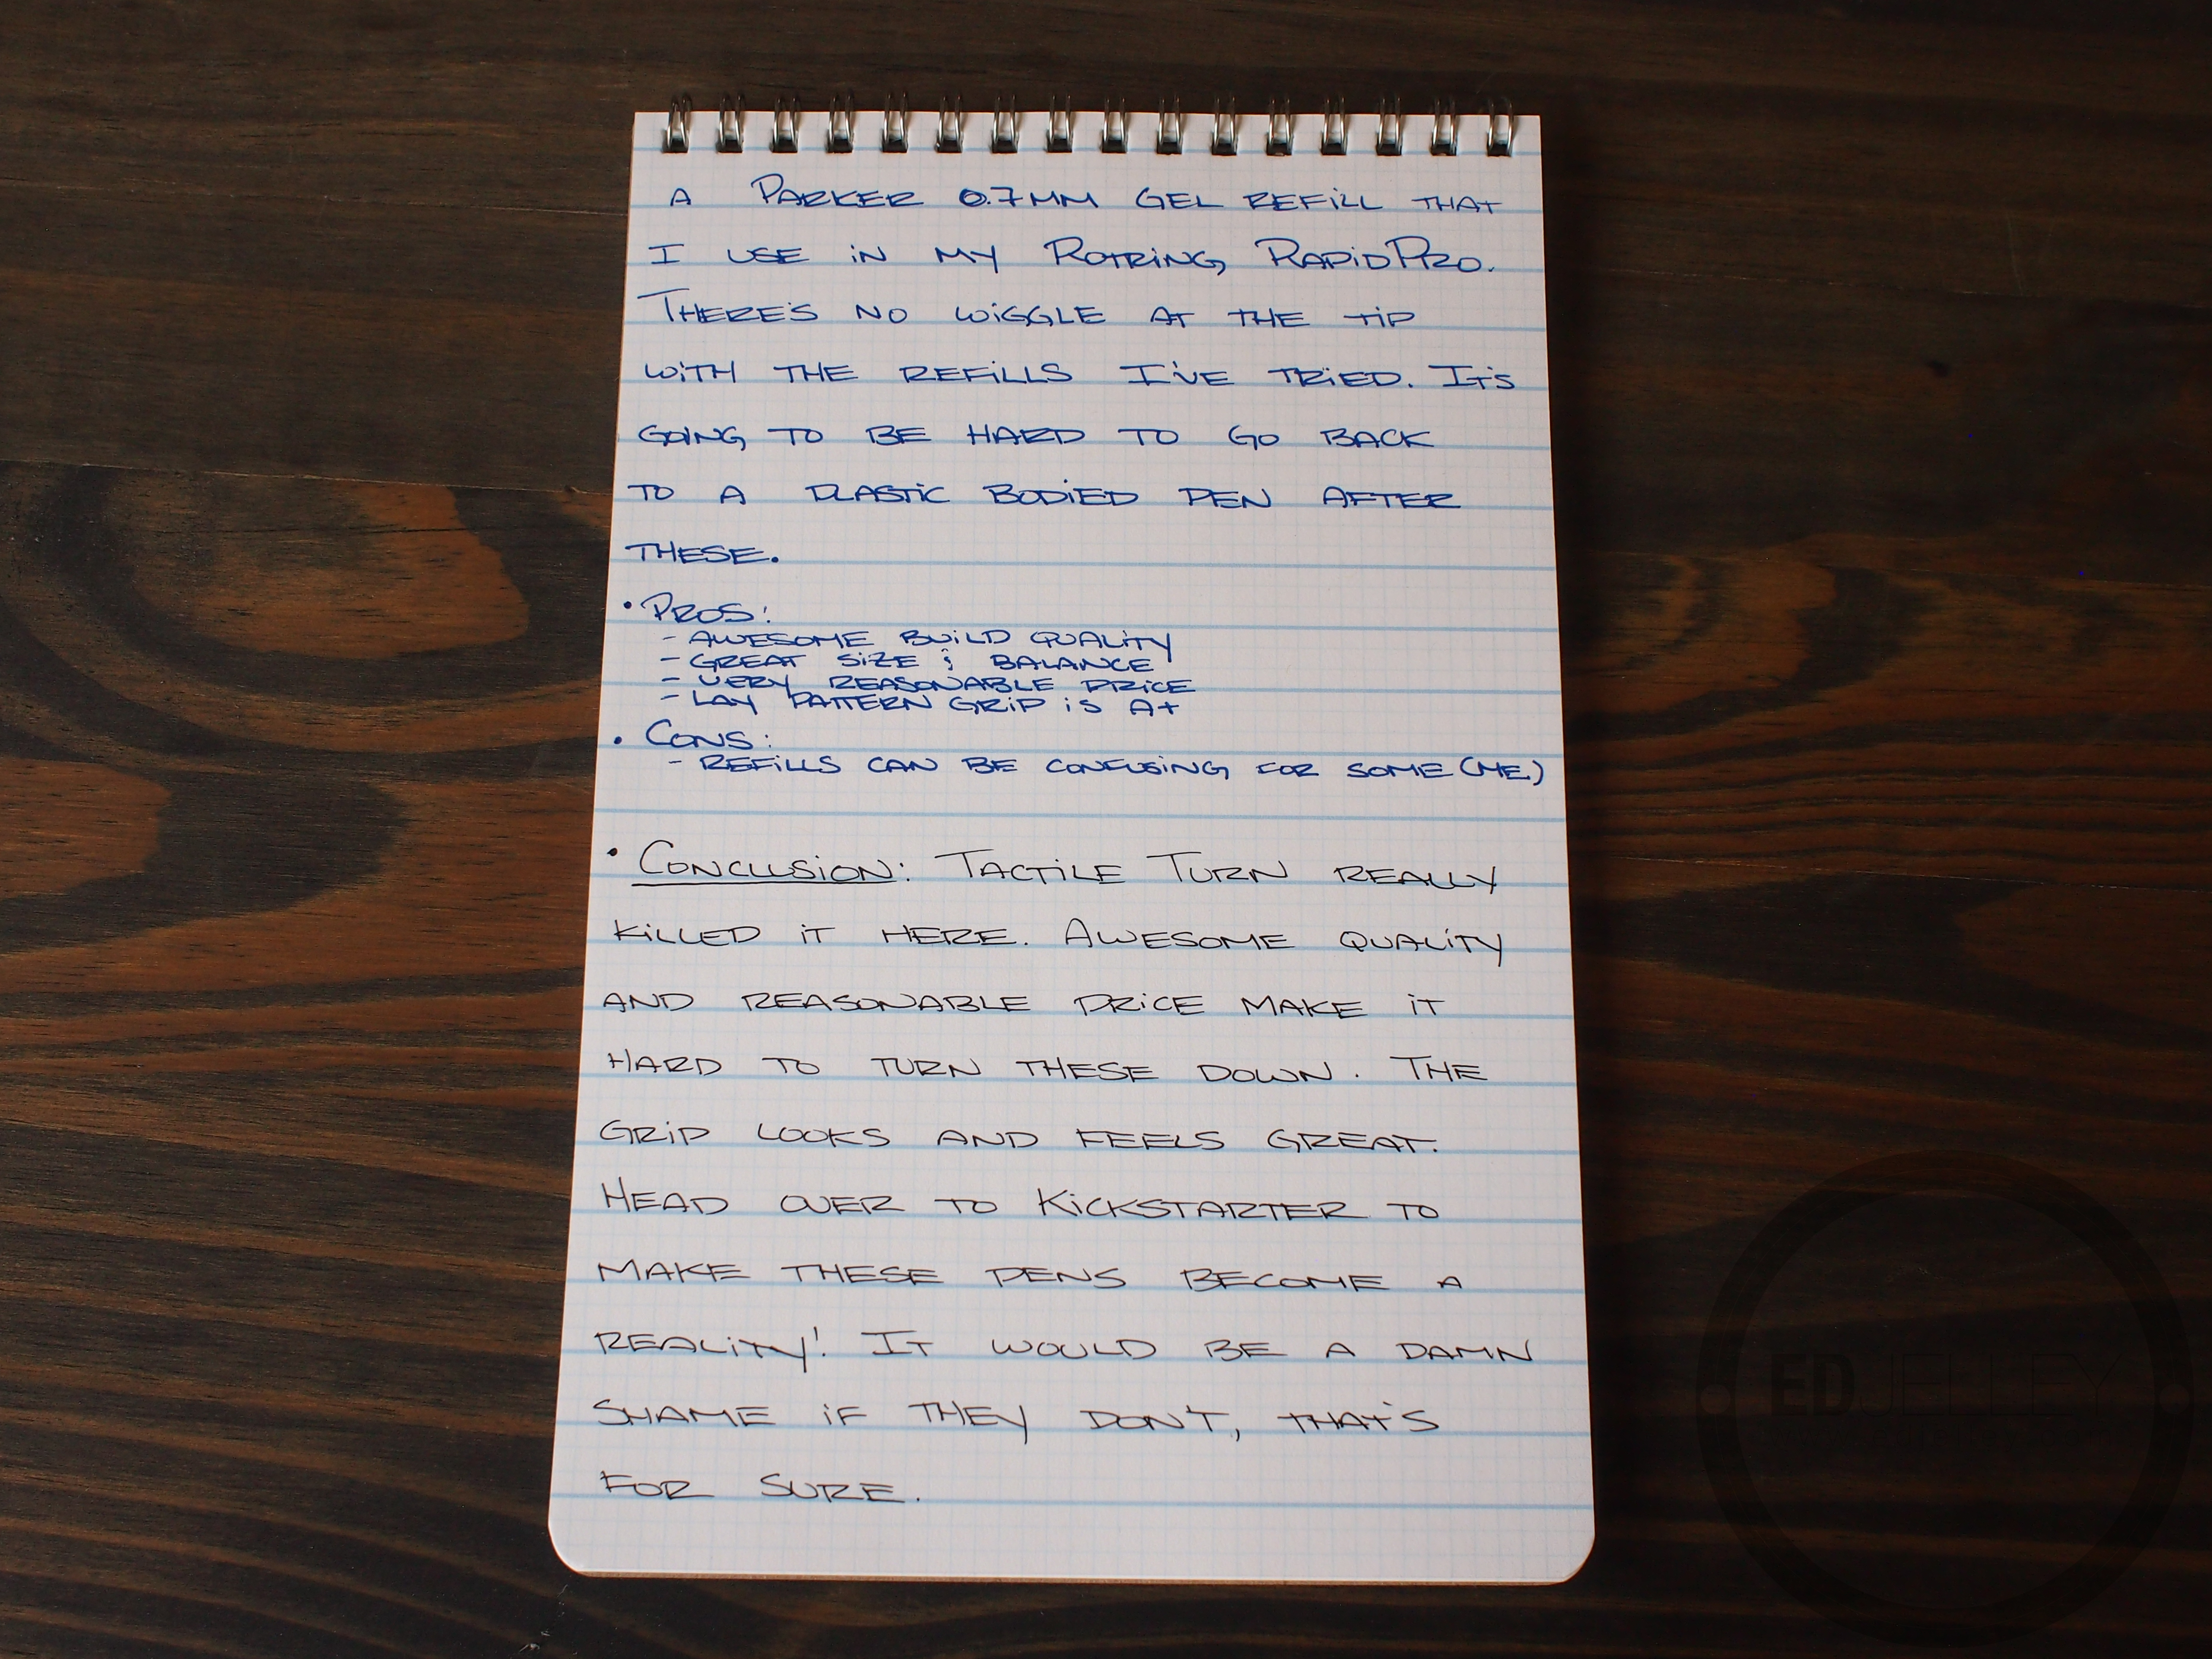 A PARKER 0.7MM GEL REFiLL THAT
I USE iN MY ROTRiNG RAPiDPRO.
THERE'S NO WiGGLE AT THE TiP
WiTH THE REFiLLS I'VE TRiED. IT'S
GOiNG TO BE HARD TO GO BACK
TO A PLASTiC BODiED PEN AFTER
THESE.
• PROS:
- AWESOME BUiLD QUALiTY
- GREAT SiZE & BALANCE
- VERY REASONABLE PRiCE
- LAY PATTERN GRiP iS A+
• CONS:
- REFiLLS CAN BE CONFUSiNG FOR SOME (ME)
• CONCLUSiON: TACTiLE TURN REALLY
KiLLED iT HERE. AWESOME QUALiTY
AND REASONABLE PRiCE MAKE iT
HARD TO TURN THESE DOWN. THE
GRiP LOOKS AND FEELS GREAT.
HEAD OVER TO KiCKSTARTER TO
MAKE THESE PENS BECOME A
REALiTY! IT WOULD BE A DAMN
SHAME iF THEY DON'T, THAT'S
FOR SURE.
EDJELLEY